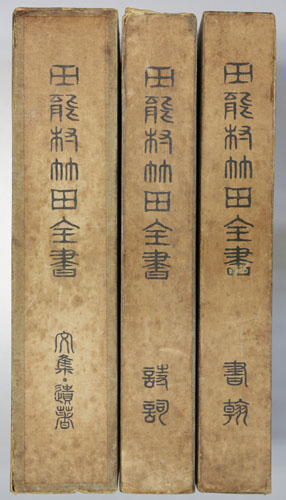 田能村竹田全書
書翰
田能村竹田全書
詩詞
田能村竹田全書
文集・遺著